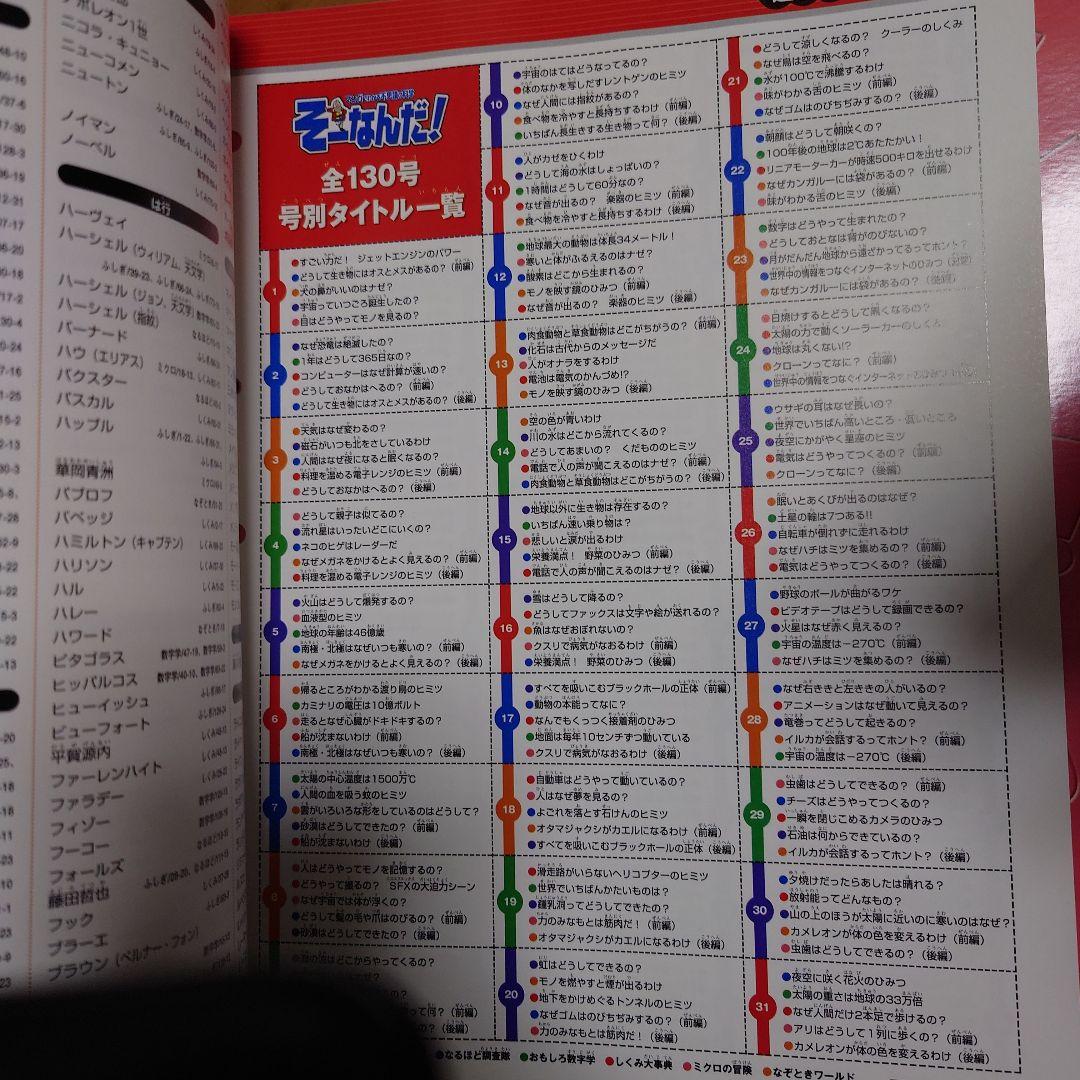 ナポレオン1世
ニコラ・キュニョー
ニューコメン
ニュートン
ノイマン
ノーベル
は行
ハーヴェイ
ハーシェル（ウィリアム、天文学）
ハーシェル（ジョン、天文学）
ハーシェル（指紋）
バーナード
ハウ（エリアス）
バクスター
パスカル
ハッブル
華岡青洲
パブロフ
バベッジ
ハミルトン（キャプテン）
ハリソン
ハル
ハレー
ハワード
ピタゴラス
ヒッパルコス
ヒューイッシュ
ビューフォート
平賀源内
ファーレンハイト
ファラデー
フィゾー
フーコー
フォールズ
藤田哲也
フック
ブラーエ
ブラウン（ベルナー・フォン）
マンガでわかる不思議の科学
そーなんだ!
全130号
号別タイトル一覧
1
すごい力だ！ ジェットエンジンのパワー
どうして生き物にはオスとメスがあるの？（前編）
犬の鼻がいいのはナゼ？
宇宙っていつごろ誕生したの？
目はどうやってモノを見るの？
2
なぜ恐竜は絶滅したの？
1年はどうして365日なの？
コンピューターはなぜ計算が速いの？
どうしておなかはへるの？（前編）
どうして生き物にはオスとメスがあるの？（後編）
3
天気はなぜ変わるの？
磁石がいつも北をさしているわけ
人間はなぜ夜になると眠くなるの？
料理を温める電子レンジのヒミツ（前編）
どうしておなかはへるの？（後編）
4
どうして親子は似てるの？
流れ星はいったいどこにいくの？
ネコのヒゲはレーダーだ
なぜメガネをかけるとよく見えるの？（前編）
料理を温める電子レンジのヒミツ（後編）
5
火山はどうして爆発するの？
血液型のヒミツ
地球の年齢は46億歳
南極・北極はなぜいつも寒い？（前編）
なぜメガネをかけるとよく見えるの？（後編）
6
帰るところがわかる渡り鳥のヒミツ
カミナリの電圧は10億ボルト
走るとなぜ心臓がドキドキするの？
船が沈まないわけ（前編）
南極・北極はなぜいつも寒い？（後編）
7
太陽の中心温度は1500万℃
人間の血を吸う蚊のヒミツ
雲がいろいろな形をしているのはどうして？
砂漠はどうしてできたの？（前編）
船が沈まないわけ（後編）
8
人はどうやってモノを記憶するの？
どうやって撮るの？ SFXの大迫力シーン
なぜ宇宙では体が浮くの？
どうして髪の毛や爪はのびるの？（前編）
砂漠はどうしてできたの？（後編）
海の波はどこからやってくるの？
10
宇宙のはてはどうなってるの？
体のなかを写しだすレントゲンのヒミツ
なぜ人間には指紋があるの？
食べ物を冷やすと長持ちするわけ（前編）
いちばん長生きする生き物って何？（後編）
11
人がカゼをひくわけ
どうして海の水はしょっぱいの？
1時間はどうして60分なの？
なぜ音が出るの？ 楽器のヒミツ（前編）
食べ物を冷やすと長持ちするわけ（後編）
12
地球最大の動物は体長34メートル！
寒いと体がふるえるのはナゼ？
酸素はどこから生まれるの？
モノを映す鏡のひみつ（前編）
なぜ音が出るの？ 楽器のヒミツ（後編）
13
肉食動物と草食動物はどこがちがうの？（前編）
化石は古代からのメッセージだ
人がオナラをするわけ
電池は電気のかんづめ!?
モノを映す鏡のひみつ（後編）
14
空の色が青いわけ
川の水はどこから流れてくるの？
どうしてあまい？ くだもののヒミツ
電話で人の声が聞こえるのはナゼ？（前編）
肉食動物と草食動物はどこがちがうの？（後編）
15
地球以外に生き物は存在するの？
いちばん速い乗り物は？
悲しいと涙が出るわけ
栄養満点！ 野菜のひみつ（前編）
電話で人の声が聞こえるのはナゼ？（後編）
16
雪はどうして降るの？
どうしてファックスは文字や絵が送れるの？
魚はなぜおぼれないの？
クスリで病気がなおるわけ（前編）
栄養満点！ 野菜のひみつ（後編）
17
すべてを吸いこむブラックホールの正体（前編）
動物の本能ってなに？
なんでもくっつく接着剤のひみつ
地面は毎年10センチずつ動いている
クスリで病気がなおるわけ（後編）
18
自動車はどうやって動いているの？
人はなぜ夢を見るの？
よごれを落とす石けんのヒミツ
オタマジャクシがカエルになるわけ（前編）
すべてを吸いこむブラックホールの正体（後編）
19
滑走路がいらないヘリコプターのヒミツ
世界でいちばんかたいものは？
鍾乳洞ってどうしてできたの？
力のみなもとは筋肉だ！（前編）
オタマジャクシがカエルになるわけ（後編）
20
虹はどうしてできるの？
モノを燃やすと煙が出るわけ
地下をかけめぐるトンネルのヒミツ
なぜゴムはのびちぢみするの？（前編）
力のみなもとは筋肉だ！（後編）
21
どうして涼しくなるの？ クーラーのしくみ
なぜ鳥は空を飛べるの？
水が100℃で沸騰するわけ
味がわかる舌のヒミツ（前編）
なぜゴムはのびちぢみするの？（後編）
22
朝顔はどうして朝咲くの？
100年後の地球は2℃あたたかい！
リニアモーターカーが時速500キロを出せるわけ
なぜカンガルーには袋があるの？（前編）
味がわかる舌のヒミツ（後編）
23
数字はどうやって生まれたの？
どうしておとなは背がのびないの？
月がだんだん地球から遠ざかってるってホント？
世界中の情報をつなぐインターネットのひみつ（前編）
なぜカンガルーには袋があるの？（後編）
24
日焼けするとどうして黒くなるの？
太陽の力で動くソーラーカーのしくみ
地球は丸くない!?
クローンってなに？（前編）
世界中の情報をつなぐインターネットのひみつ（後編）
25
ウサギの耳はなぜ長いの？
世界でいちばん高いところ・低いところ
夜空にかがやく星座のヒミツ
電気はどうやってつくるの？（前編）
クローンってなに？（後編）
26
眠いとあくびが出るのはなぜ？
土星の輪は7つある!!
自転車が倒れずに走れるわけ
なぜハチはミツを集めるの？（前編）
電気はどうやってつくるの？（後編）
27
野球のボールが曲がるワケ
ビデオテープはどうして録画できるの？
火星はなぜ赤く見えるの？
宇宙の温度は−270℃（前編）
なぜハチはミツを集めるの？（後編）
28
なぜ右ききと左ききの人がいるの？
アニメーションはなぜ動いて見えるの？
竜巻ってどうして起きるの？
イルカが会話するってホント？（前編）
宇宙の温度は−270℃（後編）
29
虫歯はどうしてできるの？（前編）
チーズはどうやってつくるの？
一瞬を閉じこめるカメラのひみつ
石油は何からできているの？
イルカが会話するってホント？（後編）
30
夕焼けだったらあしたは晴れる？
放射能ってどんなもの？
山の上のほうが太陽に近いのに寒いのはなぜ？
カメレオンが体の色を変えるわけ（前編）
虫歯はどうしてできるの？（後編）
31
夜空に咲く花火のひみつ
太陽の重さは地球の33万倍
なぜ人間だけ2本足で歩けるの？
アリはどうして1列に歩くの？（前編）
カメレオンが体の色を変えるわけ（後編）
なるほど調査隊 おもしろ数字学 しくみ大事典 ミクロの冒険 なぞときワールド